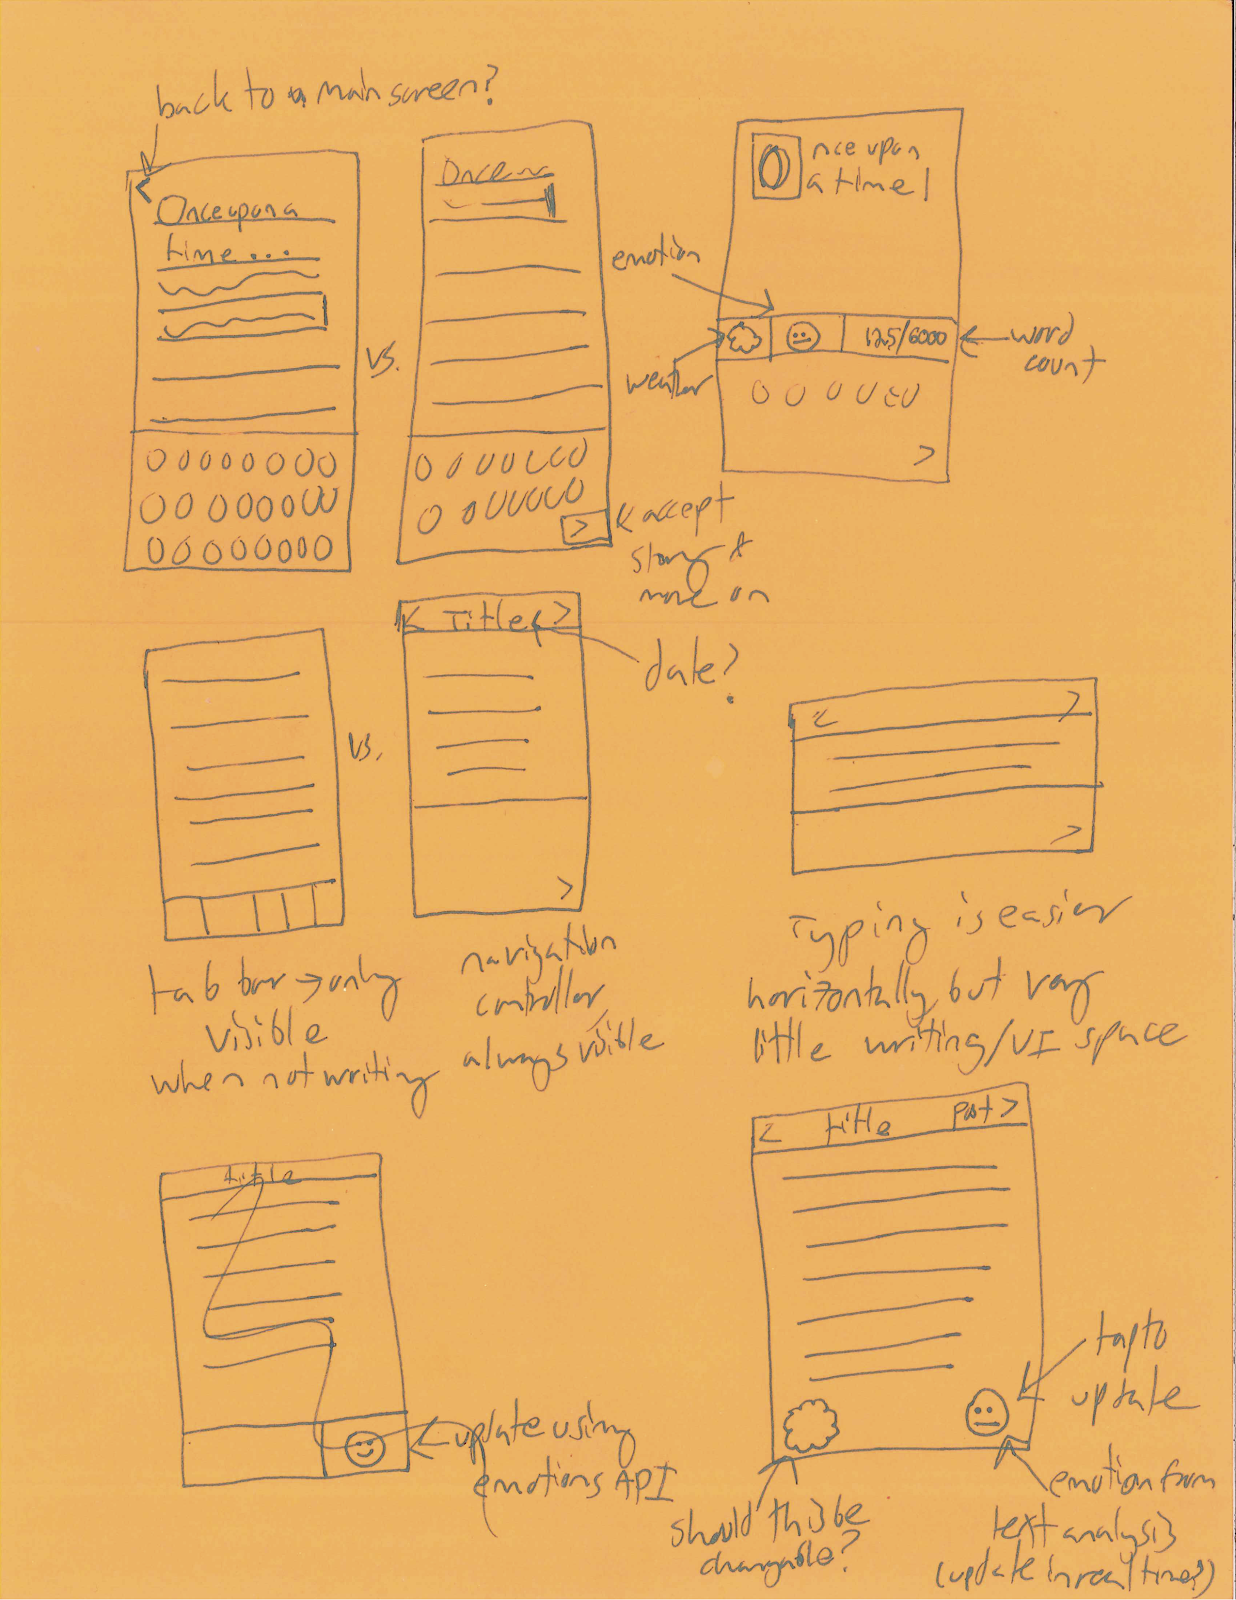 back to a main screen?
<
Once upon a
time...
vs.
Once
>
< accept
story &
move on
O nce upon
a time!
emotion
weather
125/6000
word
count
>
vs.
< Title >
date?
>
tab bar → only
visible
when not writing
navigation
controller
always visible
< >
>
Typing is easier
horizontally, but very
little writing/UI space
title
update using
emotions API
< title post >
tap to
update
emotion from
text analysis
(update in real time?)
should this be
changable?